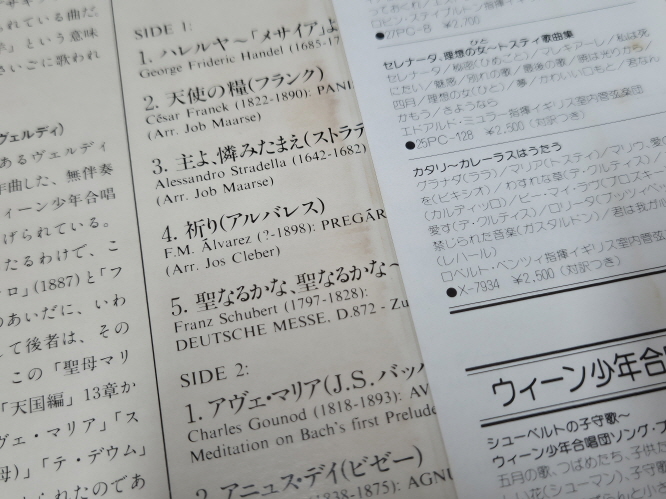 れている曲だ。
」という意味
さいごに歌われ
ヴェルディ)
あるヴェルディ
作曲した、無伴奏
ウィーン少年合唱
げられている。
たるわけで、こ
ロ」(1887)と「フ
のあいだに、いわ
て後者は、その
この「聖母マリ
「天国編」13章か
ヴェ・マリア」「ス
母)」「テ・デウム」
られたのであ
SIDE 1:
1. ハレルヤ〜「メサイア」よ
George Frideric Handel (1685-17
2. 天使の糧(フランク)
César Franck (1822-1890): PANI
(Arr. Job Maarse)
3. 主よ、憐みたまえ(ストラデ
Alessandro Stradella (1642-1682)
(Arr. Job Maarse)
4. 祈り(アルバレス)
F.M. Álvarez (?-1898): PREGÁR
(Arr. Jos Cleber)
5. 聖なるかな、聖なるかな〜
Franz Schubert (1797-1828):
DEUTSCHE MESSE. D.872 - Zu
SIDE 2:
1. アヴェ・マリア(J.S.バッハ
Charles Gounod (1818-1893): AV
Meditation on Bach's first Prelude
2. アニュス・デイ(ビゼー)
1838-1875): AGNU
●27PC-8 ¥2,700
セレナータ、理想の女〜トスティ歌曲集
セレナータ/秘密(ひめごと)/マレキアーレ/私は死
にたい/魅惑/別れの歌/最後の歌/暁は光から/
四月/理想の女(ひと)/夢/かわいい口もと/君なん
かもう/さようなら
エドアルド・ミュラー指揮イギリス室内管弦楽団
●25PC-128 ¥2,500(対訳つき)
カタリ〜カレーラスはうたう
グラナダ(ララ)/マリア(トスティ)/マリウ、愛の
を(ビキシオ)/わすれな草(デ・クルティス)/
(カルディッロ)/ビー・マイ・ラヴ(ブロズキー
愛す(デ・クルティス)/ロリータ(ブッツィペッ
禁じられた音楽(ガスタルドン)/君は我が心
(レハール)
ロベルト・ベンツィ指揮イギリス室内管弦
●X-7934 ¥2,500(対訳つき)
ウィーン少年合
シューベルトの子守歌〜
ウィーン少年合唱団ソング・ブ
五月の歌、つばめたち、子供た